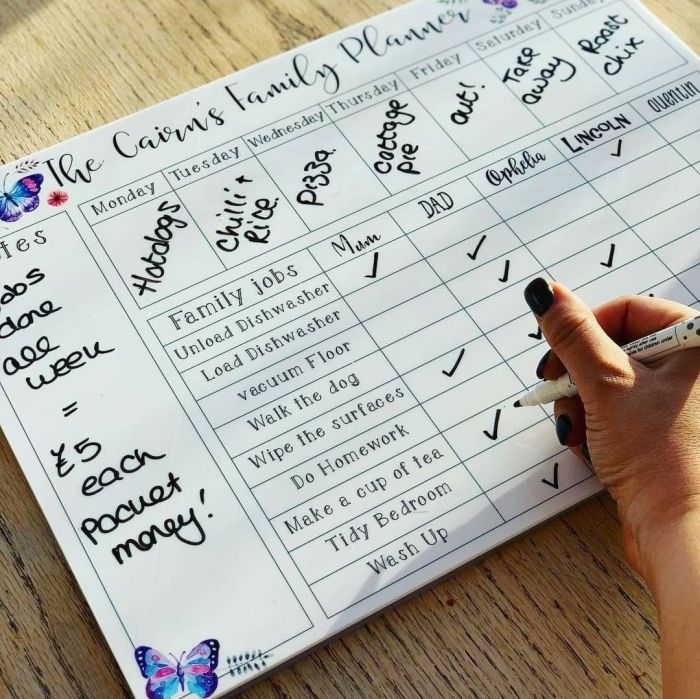 The Cairn's Family Planner
Monday Tuesday Wednesday Thursday Friday Saturday Sunday
Hotdogs
Chilli +
Rice.
Pizza.
Cottage
pie
out!
Take
away
Roast
chix
Mum DAD Ophelia LINCOLN Quentin
Family jobs
Unload Dishwasher
Load Dishwasher
vacuum Floor
Walk the dog
Wipe the surfaces
Do Homework
Make a cup of tea
Tidy Bedroom
Wash Up
done
all
week
=
£5
each
pocket
money!